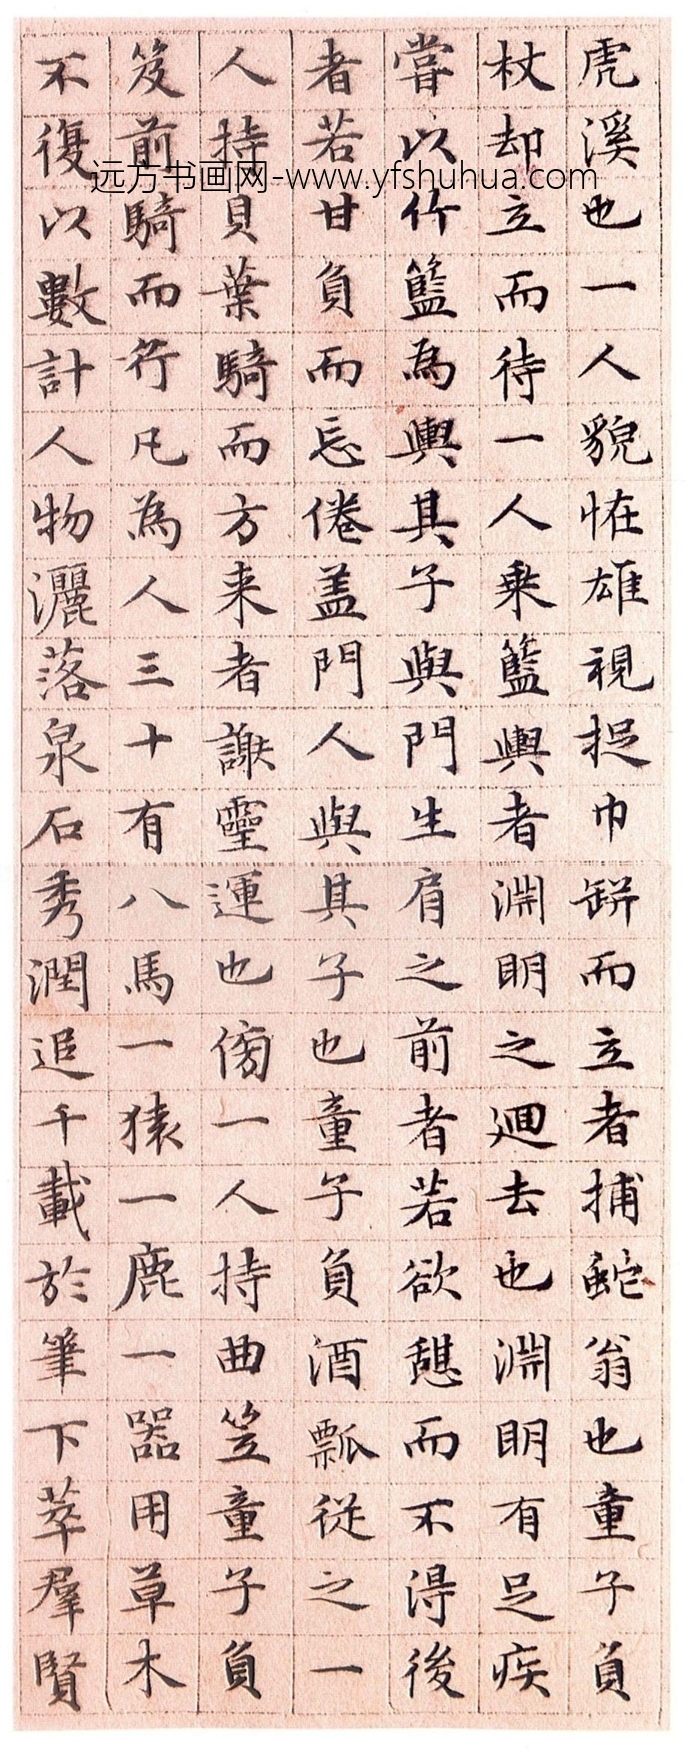 虎溪也一人貌恠雄視捉巾缾而立者捕蛇翁也童子負
杖却立而待一人乘籃輿者淵明之迴去也淵明有足疾
嘗以竹籃為輿其子與門生肩之前者若欲憩而不得後
者若甘負而忘倦盖門人與其子也童子負酒瓢從之一
人持貝葉騎而方来者謝靈運也傍一人持曲笠童子負
笈前騎而行凡為人三十有八馬一猿一鹿一器用草木
不復以數計人物灑落泉石秀潤追千載於筆下萃羣賢
远方书画网-www.yfshuhua.com